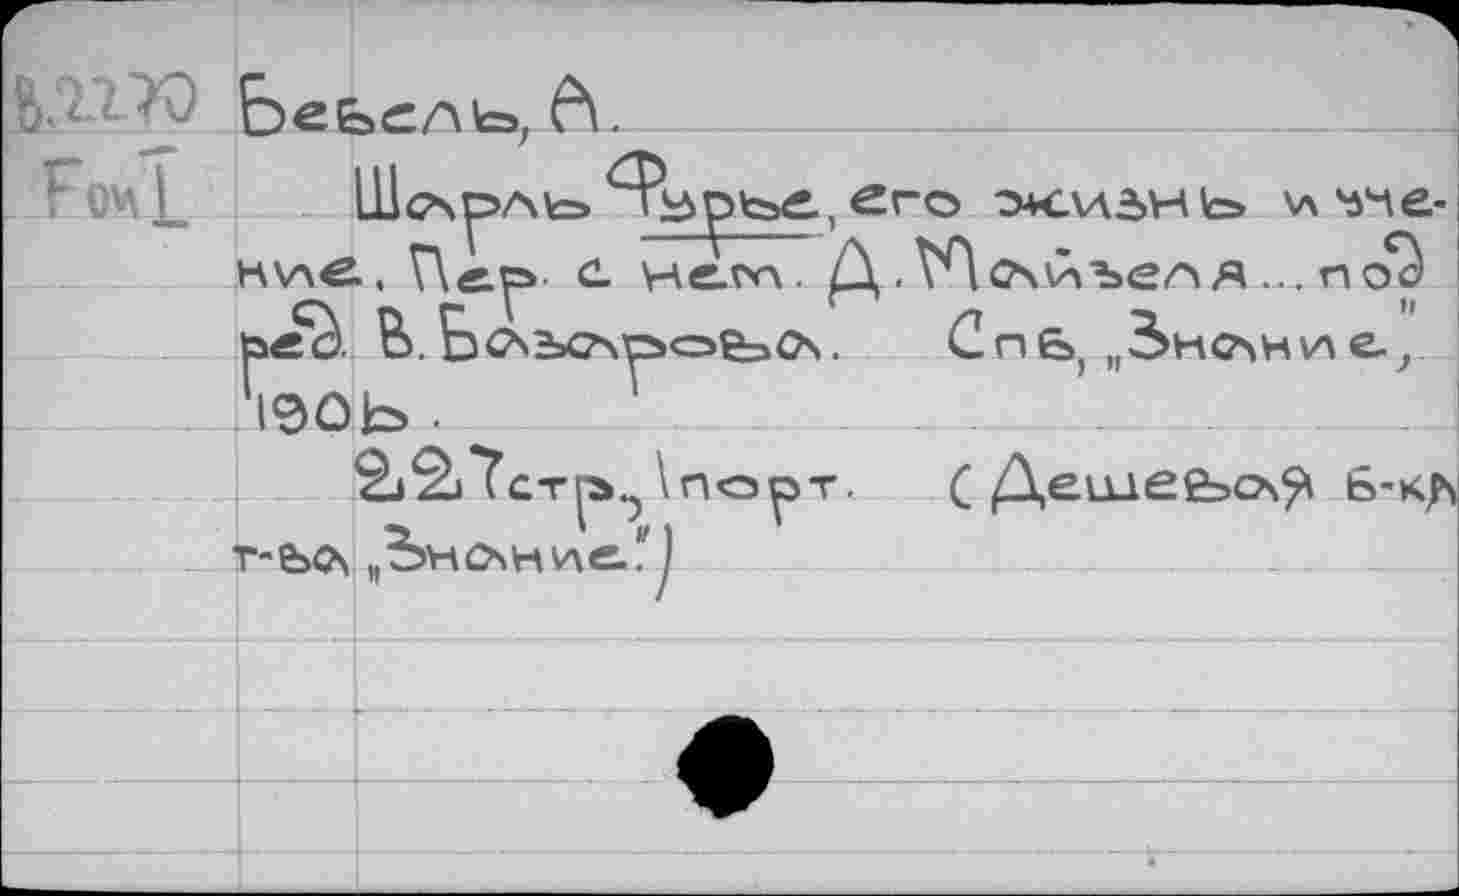 В.2270 Бебель, А.
Fou 1 Шарль Фурье, его жизнь и уче-
ние. Пер. с нем. Д. Майзеля... под
ред. В. Базарова. Спб, „Знание",
1906.
227 стр., 1 порт. (Дешевая б-ка
т-ва „Знание".)